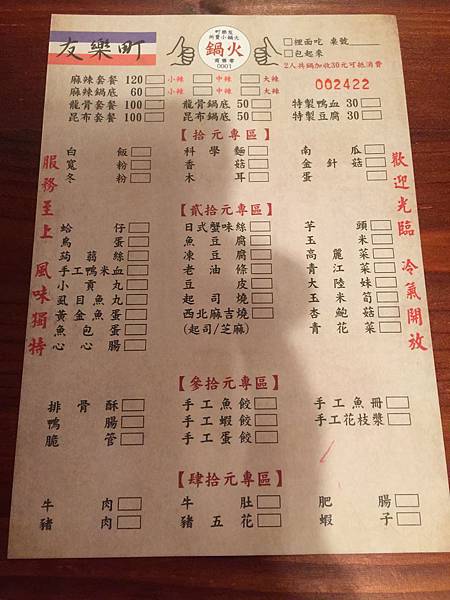 友樂町
友樂町
尚賣小鍋火
鍋火
0001
□裡面吃 桌號
□包起來
2人共鍋加收30元可抵消費
002422
麻辣套餐 120 □小辣 □中辣 □大辣
麻辣鍋底 60 □小辣 □中辣 □大辣
龍骨套餐 100 □ 龍骨鍋底 50 □ 特製鴨血 30 □
昆布套餐 100 □ 昆布鍋底 50 □ 特製豆腐 30 □
【拾元專區】
白飯□ 科學麵□ 南瓜□
寬粉□ 香菇□ 金針菇□
冬粉□ 木耳□ 蛋□
【貳拾元專區】
蛤仔□ 日式蟹味絲□ 芋頭□
鳥蛋□ 魚豆腐□ 玉米□
蒟蒻絲□ 凍豆腐□ 高麗菜□
手工鴨米血□ 老油條□ 青江菜□
小貢丸□ 豆皮□ 大陸妹□
虱目魚丸□ 起司燒□ 玉米筍□
黃金魚蛋□ 西北麻吉燒□ 杏鮑菇□
魚包蛋□ (起司/芝麻) 青花菜□
心心腸□
【參拾元專區】
排骨酥□ 手工魚餃□ 手工魚冊□
鴨腸□ 手工蝦餃□ 手工花枝漿□
脆管□ 手工蛋餃□
【肆拾元專區】
牛肉□ 牛肚□ 肥腸□
豬肉□ 豬五花□ 蝦子□
服務至上 風味獨特
歡迎光臨 冷氣開放